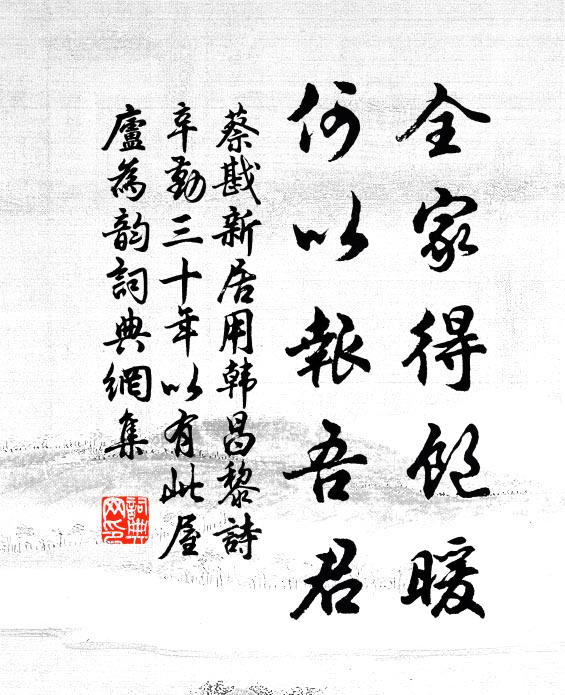 全家得飽暖
何以報吾君
蔡戡新居用韩昌黎詩
辛勤三十年以有此屋
廬為韵詞典網集
詞典
网印